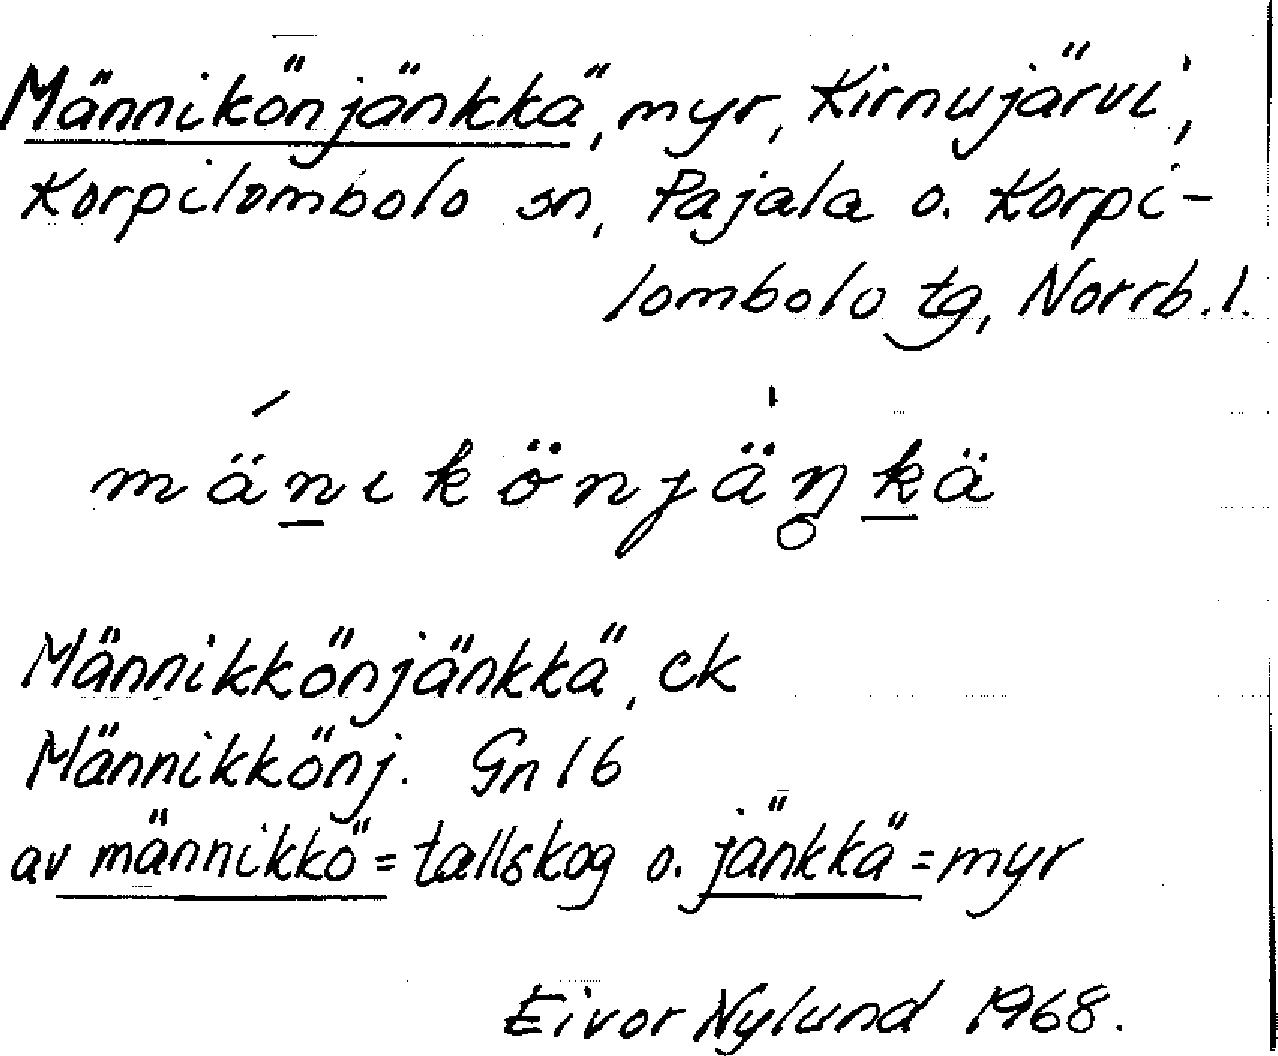 Männikönjänkkä, myr, Kirnujärvi,
Korpilombolo sn, Pajala o. Korpi-
lombolo tg, Norrb. l.
mänıkönjäŋ̥kä
Männikkönjänkkä, ck
Männikkönj. Gn 16
av männikkö = tallskog o. jänkkä = myr
Eivor Nylund 1968.